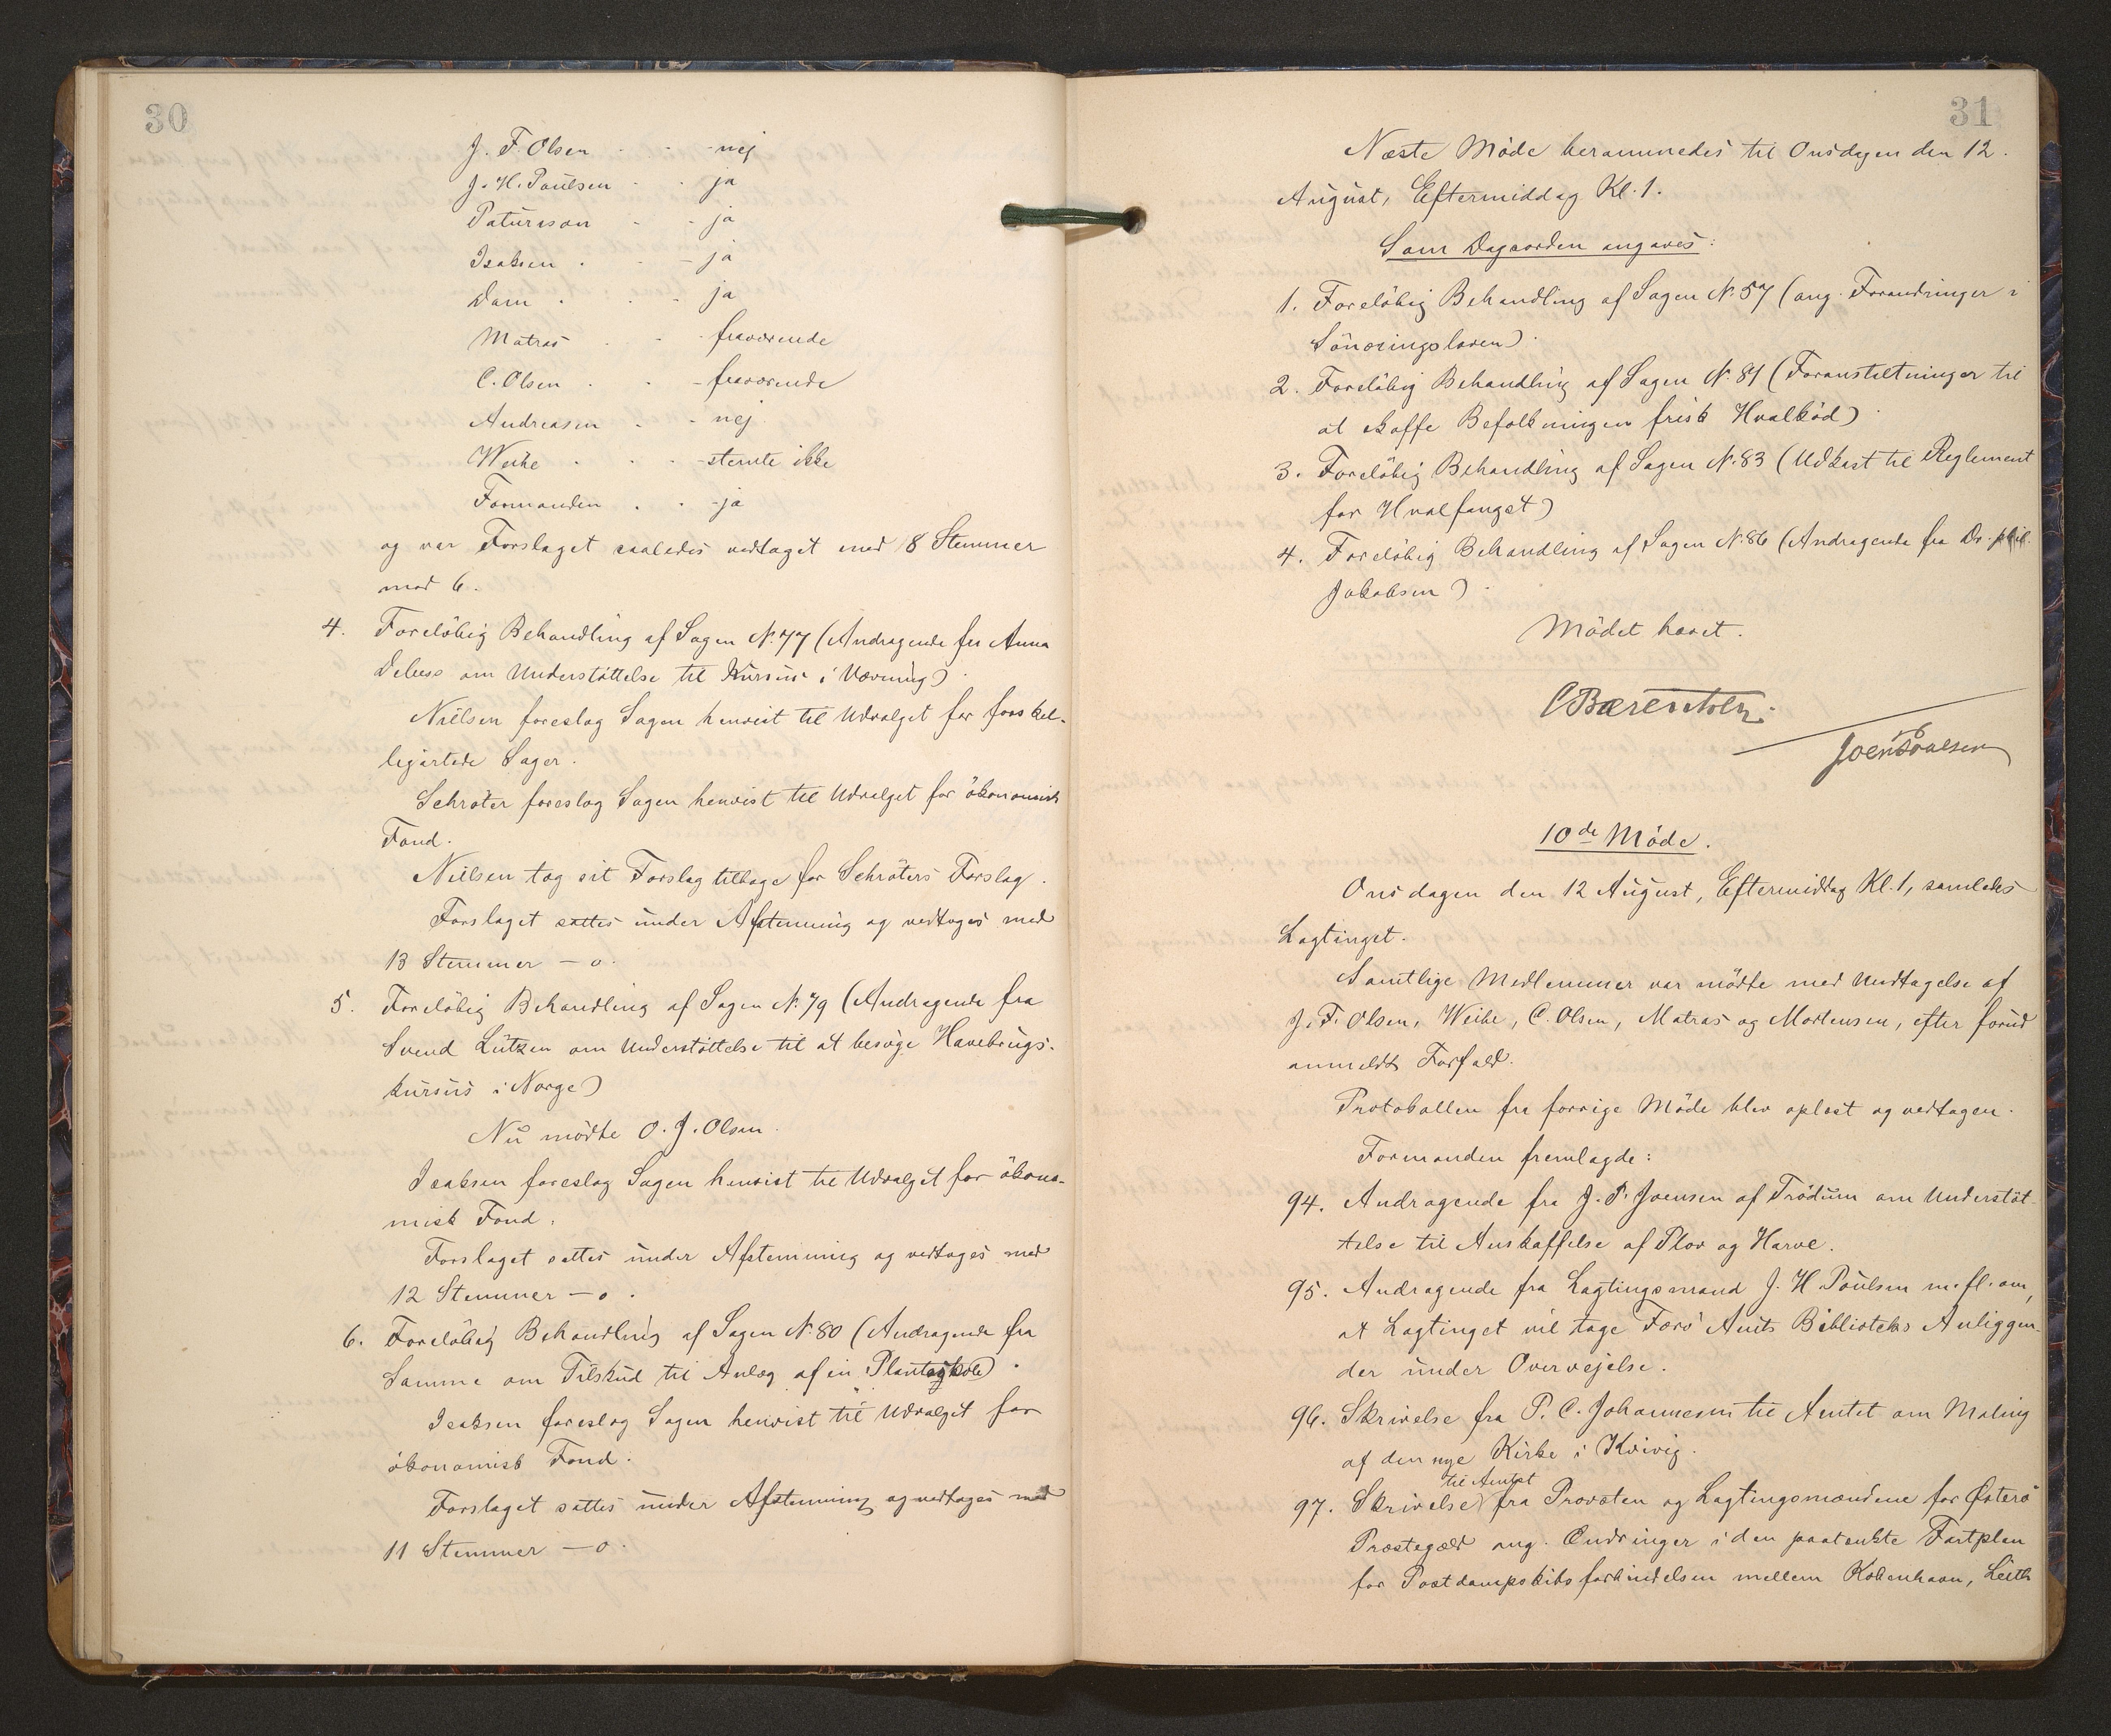 30
J. F. Olsen - - - nej
J. H. Poulsen - - ja
Patursson - - ja
Isaksen . - - ja
Dam . . - ja
Matras . - - fraværende
C. Olsen . - - fraværende
Andreasen - - nej
Weihe . . - stemte ikke
Formanden . . - ja
og var Forslaget saaledes vedtaget med 8 Stemmer
mod 6.
4. Foreløbig Behandling af Sagen No. 77 (Andragende fra Anna
Debess om Understøttelse til Kursus i Vævning).
Nielsen foreslog Sagen henvist til Udvalget for forskel-
ligartede Sager.
Schrøter foreslog Sagen henvist til Udvalget for økonomisk
Fond.
Nielsen tog sit Forslag tilbage for Schrøters Forslag.
Forslaget sattes under Afstemning og vedtoges med
13 Stemmer – 0.
5. Foreløbig Behandling af Sagen No. 79 (Andragende fra
Svend Lützen om Understøttelse til at besøge Havebrugs-
kursus i Norge)
Nu mødte O. J. Olsen.
Isaksen foreslog Sagen henvist til Udvalget for økono-
misk Fond.
Forslaget sattes under Afstemning og vedtoges med
12 Stemmer – 0.
6. Foreløbig Behandling af Sagen No. 80 (Andragende fra
Samme om Tilskud til Anlæg af en Planteskole).
Isaksen foreslog Sagen henvist til Udvalget for
økonomisk Fond.
Forslaget sattes under Afstemning og vedtoges med
11 Stemmer – 0.
31
Næste Møde berammedes til Onsdagen den 12.
August, Eftermiddag Kl. 1.
Som Dagsorden angaves:
1. Foreløbig Behandling af Sagen No. 57 (ang. Forandringer i
Sønæringsloven).
2. Foreløbig Behandling af Sagen No. 81 (Foranstaltninger til
at skaffe Befolkningen frisk Hvalkød).
3. Foreløbig Behandling af Sagen No. 83 (Udkast til Reglement
for Hvalfangst)
4. Foreløbig Behandling af Sagen No. 86 (Andragende fra Dr. phil.
Jakobsen).
Mødet hævet.
C Bærentsen.
Joen Poulsen
10de Møde.
Onsdagen den 12 August, Eftermiddag Kl. 1, samledes
Lagtinget.
Samtlige Medlemmer var mødte med Undtagelse af
J. F. Olsen, Weihe, C. Olsen, Matras og Mortensen, efter forud
anmeldt Forfald.
Protokollen fra forrige Møde blev oplæst og vedtagen.
Formanden fremlagde:
94. Andragende fra J. P. Joensen af Trødum om Understøt-
telse til Anskaffelse af Plov og Harve.
95. Andragende fra Lagtingsmand J. H. Poulsen m. fl. om,
at Lagtinget vil tage Færø Amts Biblioteks Anliggen-
der under Overvejelse.
96. Skrivelse fra P. C. Johannesen til Amtet om Maling
af den nye Kirke i Kvivig.
til Amtet
97. Skrivelse fra Provsten og Lagtingsmændene for Østerø
Præstegæld ang. Ændringer i den paatænkte Fartplan
for Postdampskibsforbindelsen mellem København, Leith